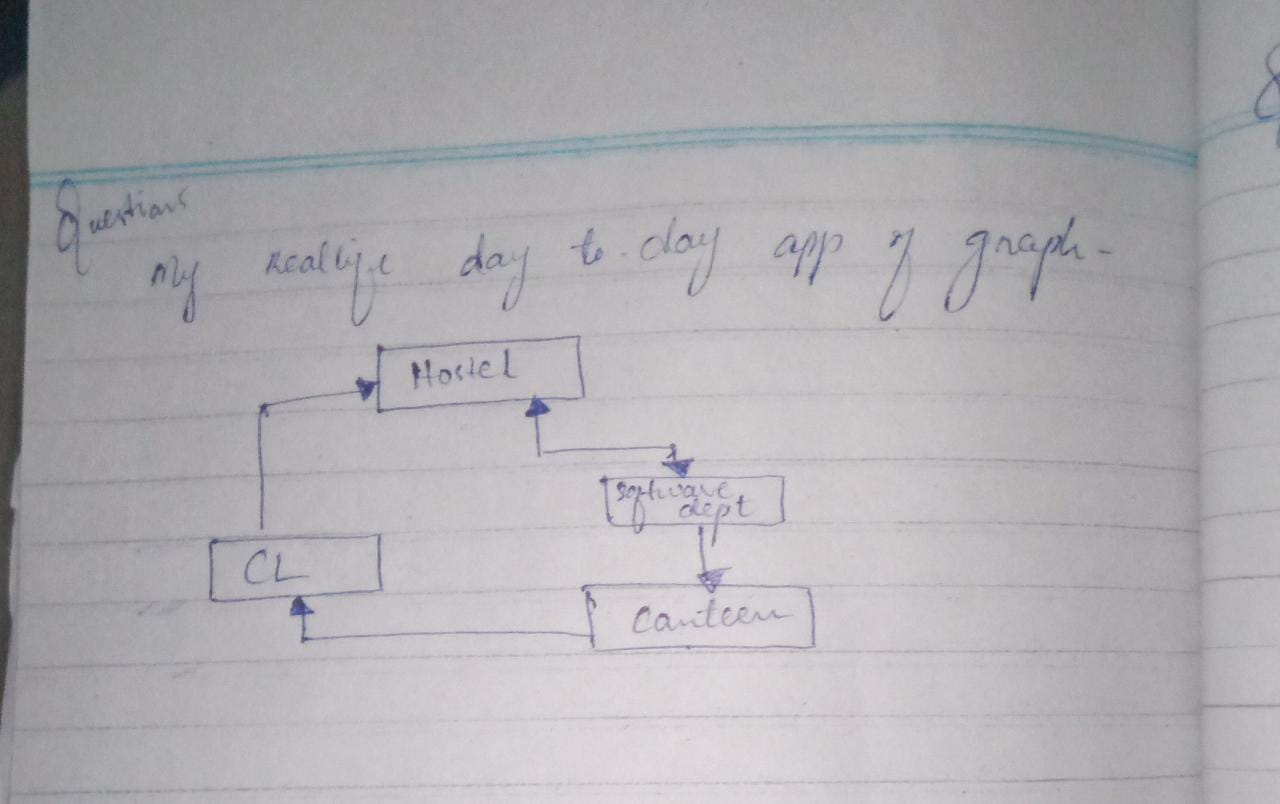 Questions
My reallife day to day app of graph-
Hostel
software
dept
CL
Canteen